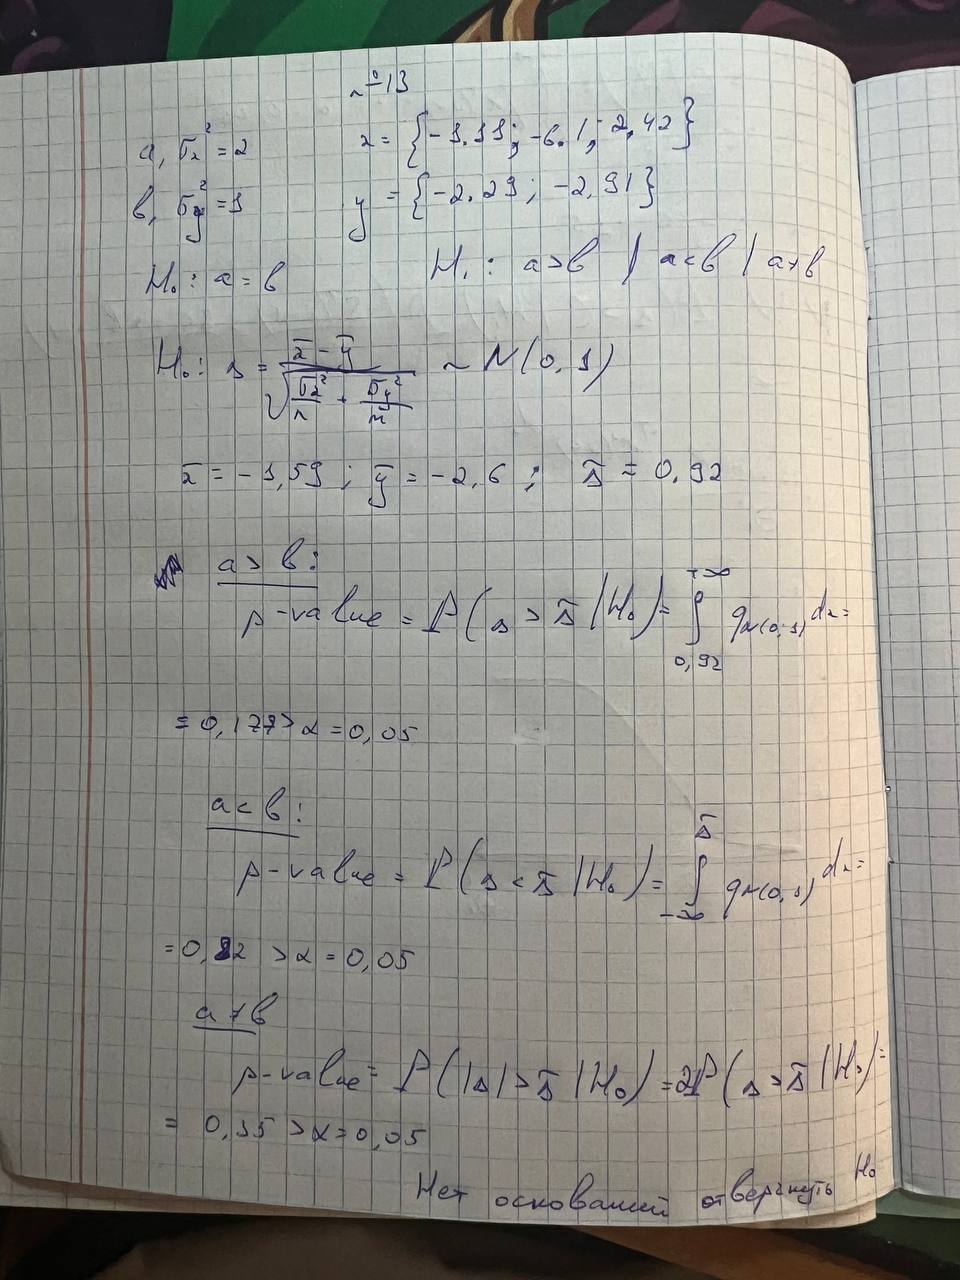 №13
a, σx² = 2   x = {-1.11; -6.1; -2,42}
b, σy² = 1   y = {-2.29; -2,91}
H₀: a = b   H₁: a > b | a < b | a ≠ b
H₀: s = (x̄ - ȳ) / √(σx²/n + σy²/m) ~ N(0, 1)
x̄ = -1,59; ȳ = -2,6; s̄ = 0,92
a > b:
p-value = P(s > s̄ | H₀) = ∫_{0,92}^{+∞} q_{N(0,1)} dx =
= 0,177 > α = 0,05
a < b:
p-value = P(s < s̄ | H₀) = ∫_{-∞}^{s̄} q_{N(0,1)} dx =
= 0,82 > α = 0,05
a ≠ b
p-value = P(|s| > s̄ | H₀) = 2P(s > s̄ | H₀) =
= 0,35 > α = 0,05
Нет оснований отвергнуть H₀